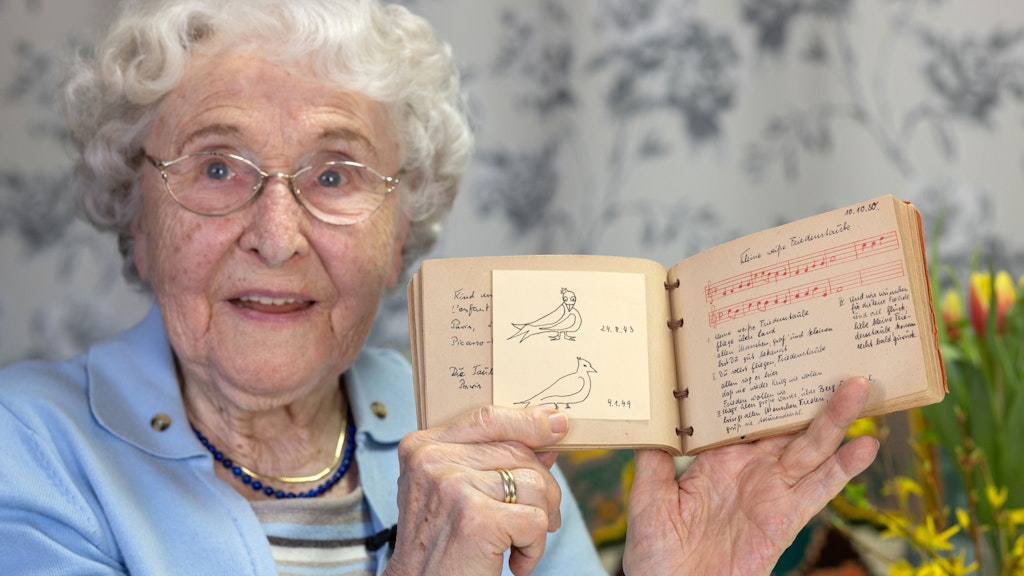 Kind un
L'enfant
Paris,
Picasso-
Die Taub
Paris
24.8.43
9.1.49
10.10.50.
Kleine weiße Friedenstaube.
1. Kleine weiße Friedenstaube
fliege übers Land
allen Menschen, groß und kleinen
bist Du gut bekannt
2. Du sollst fliegen Friedenstaube
allen sag es hier
daß nie wieder Krieg wir wollen
Frieden wollen wir
3. fliege übers große Wasser über Berg
bring allen Menschen Frieden
grüß sie
4. Und wir wünschen
für deine Reise
und all
liebe kleine Frie-
denstaube komm
recht bald zurück